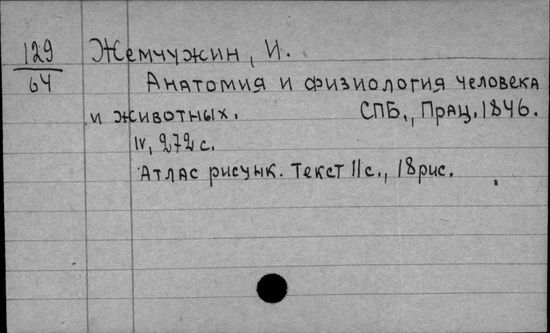 129 Жемчужин, И.
64 Анатомия и физиология человека
и животных. СПБ., Прац. 1846.
IV, 272 с.
Атлас рисунк. Текст 11 с., 18 рис.